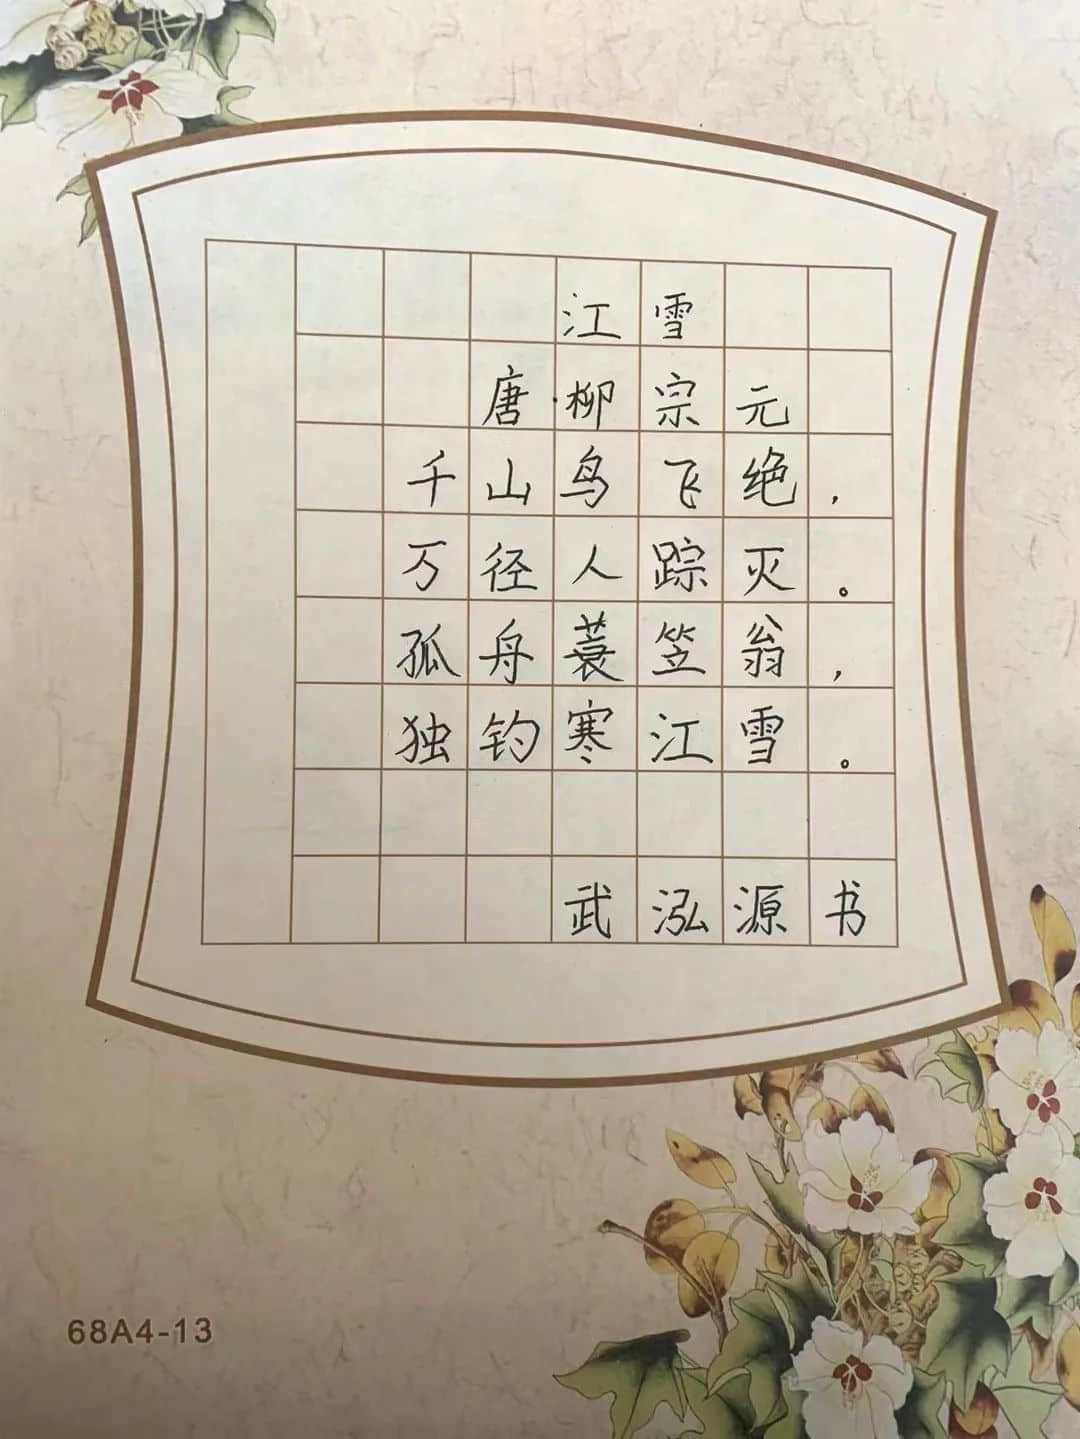 江雪
唐·柳宗元
千山鸟飞绝，
万径人踪灭。
孤舟蓑笠翁，
独钓寒江雪。
武泓源书
68A4-13